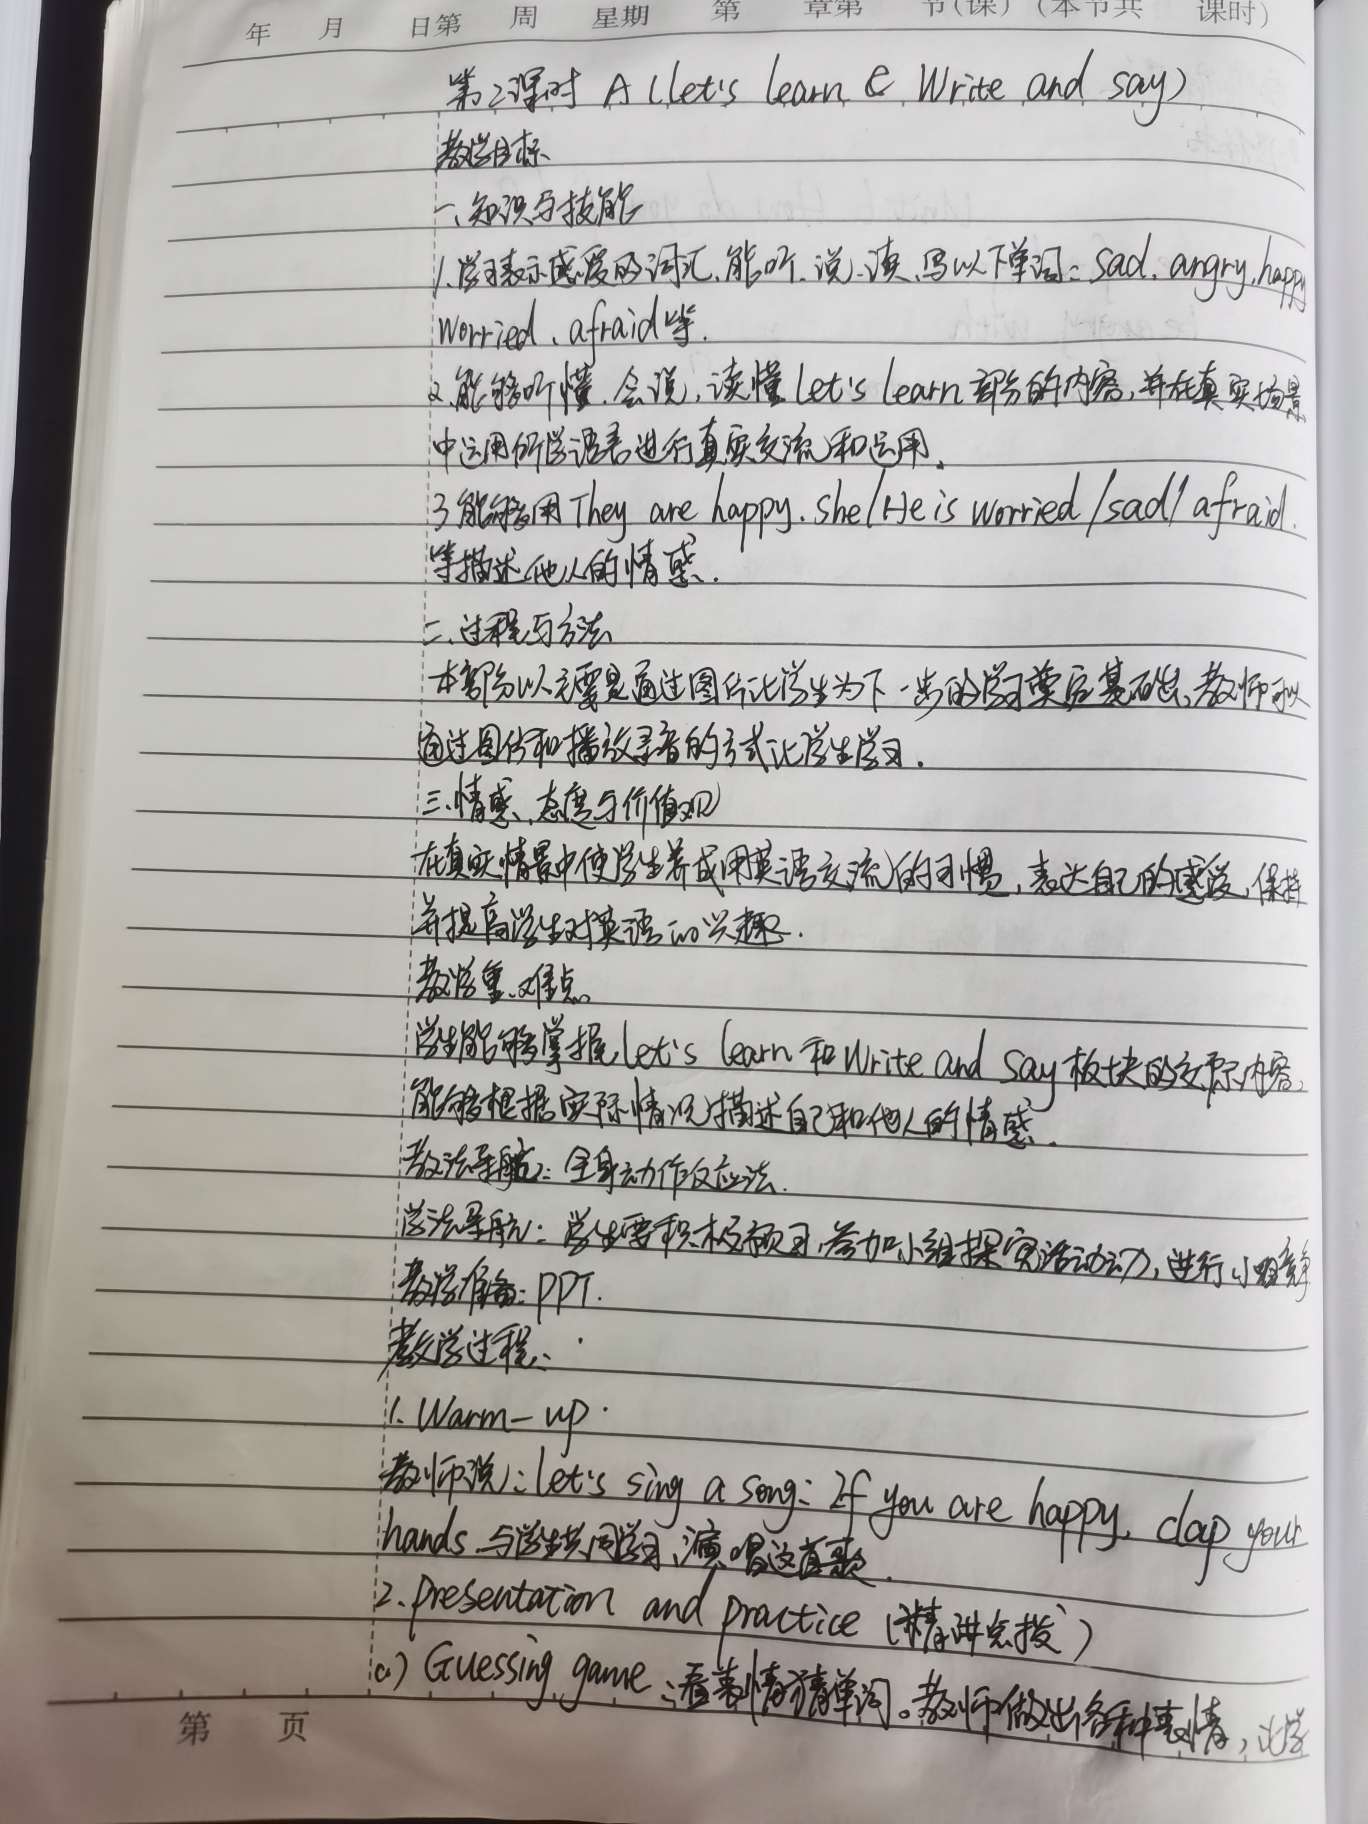 年 月 日第 周 星期 第 章第 节(课) (本节共 课时)
第2课时 A (Let's learn & Write and say)
教学目标
一、知识与技能
1、学习表示感受的词汇，能听、说、读、写以下单词：sad, angry, happy
worried、afraid等.
2、能够听懂、会说，读懂Let's learn部分的内容，并在真实场景
中运用所学语言进行真实交流和运用。
3 能够用They are happy. She/He is worried/sad/afraid.
等描述他人的情感.
二、过程与方法
本部分以主要是通过图片让学生为下一步的学习奠定基础，教师可以
通过图片和播放录音的方式让学生学习.
三、情感、态度与价值观
在真实情景中使学生养成用英语交流的习惯，表达自己的感受，保持
并提高学生对英语的兴趣.
教学重、难点
学生能够掌握Let's learn和Write and say板块的交际内容，
能够根据实际情况描述自己和他人的情感.
教法导航：全身动作反应法.
学法导航：学生要积极预习，参加小组探究活动，进行小组竞争
教学准备：PPT.
教学过程：
1. Warm-up.
教师说：Let's sing a song: If you are happy, clap your
hands. 与学生共同学习、演唱这首歌.
2. Presentation and practice (精讲点拨)
a) Guessing game：看表情猜单词。教师做出各种表情，让学
第 页